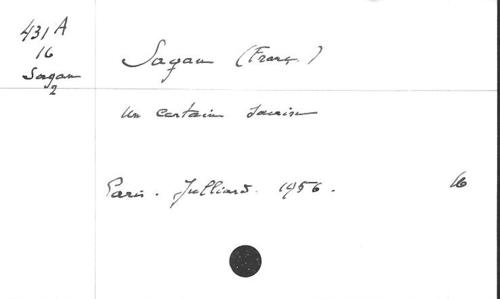 431 A
16
Sagan
2
Sagan (Franç.)
Un certain sourire
Paris. Julliard. 1956.
16